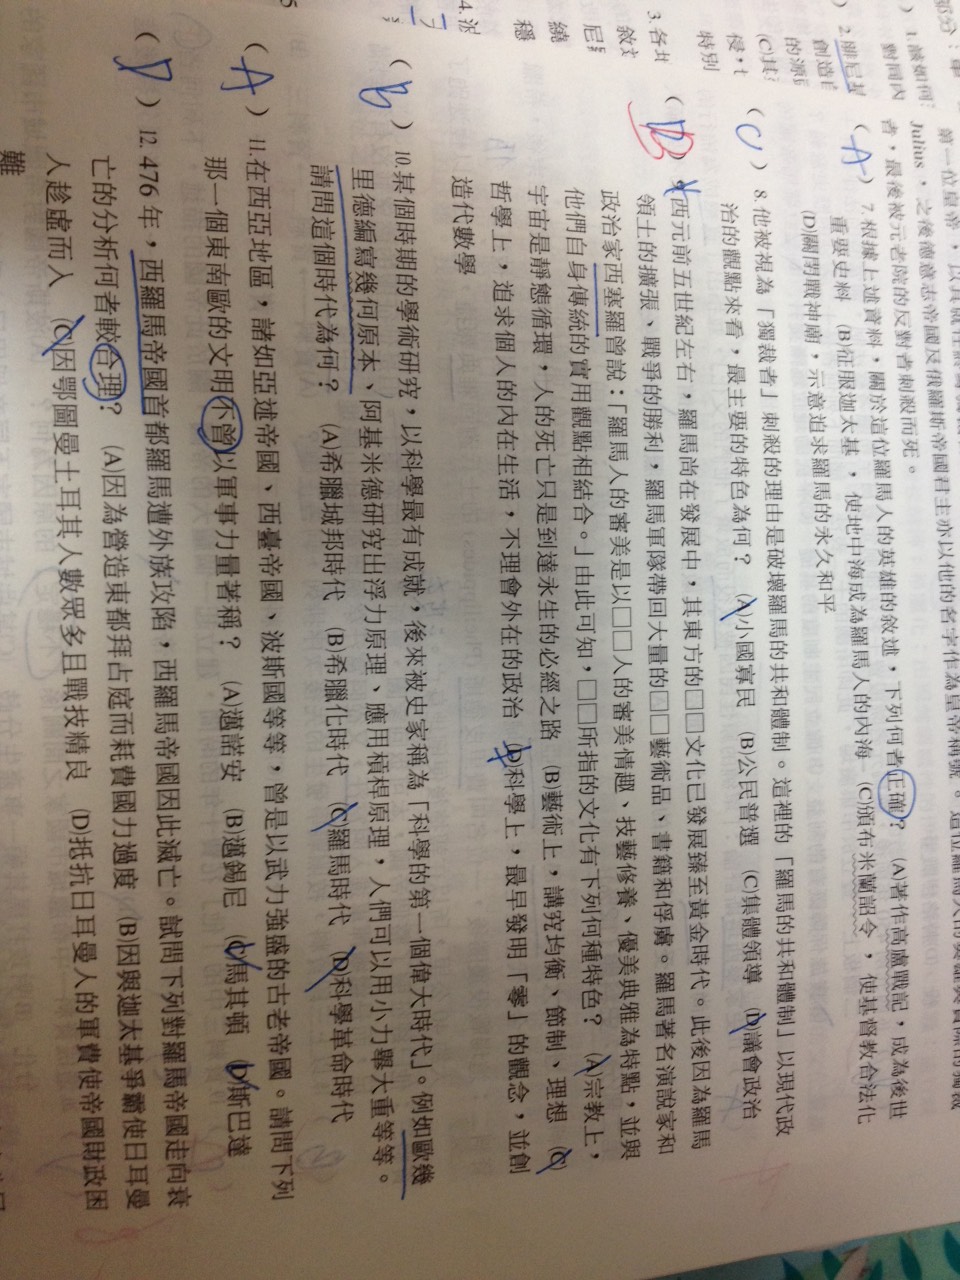 第一位皇帝，
Julius，之後德意志帝國及俄羅斯帝國君主亦以他的名字作為皇帝稱號。
者，最後被元老院的反對者刺殺而死。
(A) 7. 根據上述資料，關於這位羅馬人的英雄的敘述，下列何者正確？ (A)著作高盧戰記，成為後世
重要史料 (B)征服迦太基，使地中海成為羅馬人的內海 (C)頒布米蘭詔令，使基督教合法化
(D)關閉戰神廟，示意追求羅馬的永久和平
(C) 8. 他被視為「獨裁者」刺殺的理由是破壞羅馬的共和體制。這裡的「羅馬的共和體制」以現代政
治的觀點來看，最主要的特色為何？ (A)小國寡民 (B)公民普選 (C)集體領導 (D)議會政治
(B) 9. 西元前五世紀左右，羅馬尚在發展中，其東方的□□文化已發展臻至黃金時代。此後因為羅馬
領土的擴張、戰爭的勝利，羅馬軍隊帶回大量的□□藝術品、書籍和俘虜。羅馬著名演說家和
政治家西塞羅曾說：「羅馬人的審美是以□□人的審美情趣、技藝修養、優美典雅為特點，並與
他們自身傳統的實用觀點相結合。」由此可知，□□所指的文化有下列何種特色？ (A)宗教上，
宇宙是靜態循環，人的死亡只是到達永生的必經之路 (B)藝術上，講究均衡、節制、理想 (C)
哲學上，追求個人的內在生活，不理會外在的政治 (D)科學上，最早發明「零」的觀念，並創
造代數學
(B) 10. 某個時期的學術研究，以科學最有成就，後來被史家稱為「科學的第一個偉大時代」。例如歐幾
里德編寫幾何原本、阿基米德研究出浮力原理、應用槓桿原理，人們可以用小力舉大重等等。
請問這個時代為何？ (A)希臘城邦時代 (B)希臘化時代 (C)羅馬時代 (D)科學革命時代
(A) 11. 在西亞地區，諸如亞述帝國、西臺帝國、波斯國等等，曾是以武力強盛的古老帝國。請問下列
那一個東南歐的文明不曾以軍事力量著稱？ (A)邁諾安 (B)邁錫尼 (C)馬其頓 (D)斯巴達
(D) 12. 476 年，西羅馬帝國首都羅馬遭外族攻陷，西羅馬帝國因此滅亡。試問下列對羅馬帝國走向衰
亡的分析何者較合理？ (A)因為營造東都拜占庭而耗費國力過度 (B)因與迦太基爭霸使日耳曼
人趁虛而入 (C)因鄂圖曼土耳其人數眾多且戰技精良 (D)抵抗日耳曼人的軍費使帝國財政困
難